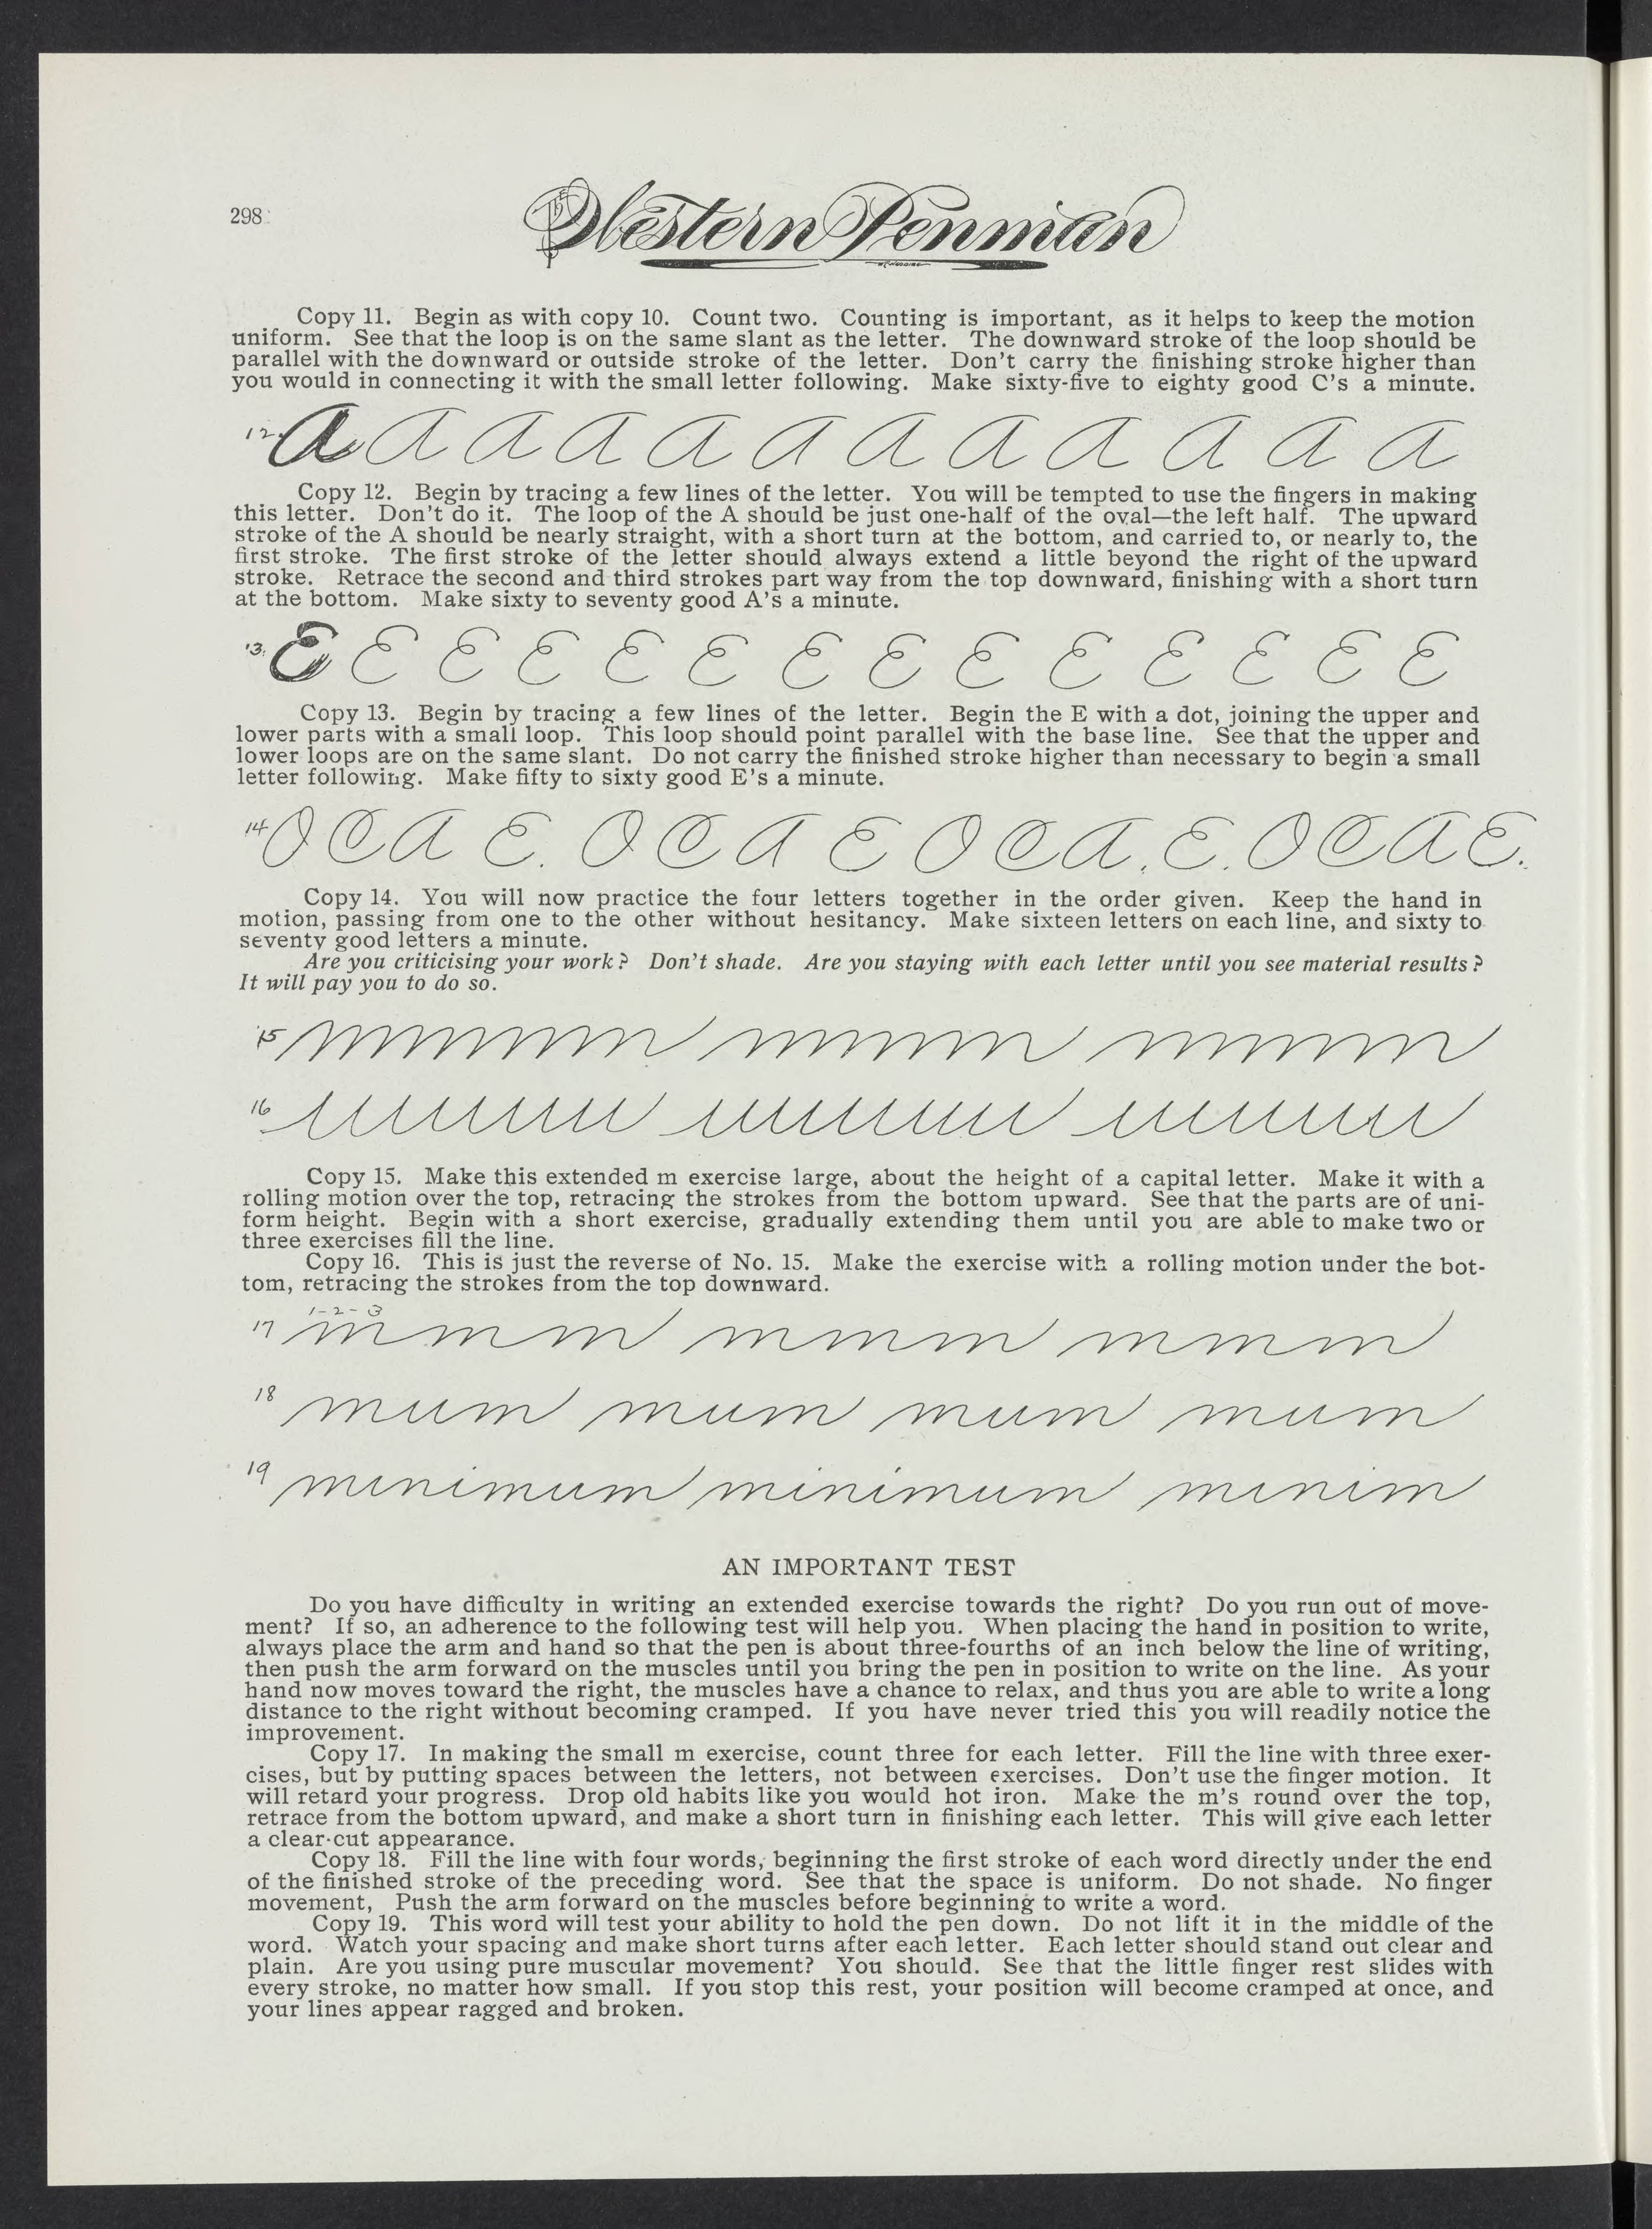 298
The Western Penman
Copy 11. Begin as with copy 10. Count two. Counting is important, as it helps to keep the motion
uniform. See that the loop is on the same slant as the letter. The downward stroke of the loop should be
parallel with the downward or outside stroke of the letter. Don't carry the finishing stroke higher than
you would in connecting it with the small letter following. Make sixty-five to eighty good C's a minute.
12. A A A A A A A A A A A A
Copy 12. Begin by tracing a few lines of the letter. You will be tempted to use the fingers in making
this letter. Don't do it. The loop of the A should be just one-half of the oval—the left half. The upward
stroke of the A should be nearly straight, with a short turn at the bottom, and carried to, or nearly to, the
first stroke. The first stroke of the letter should always extend a little beyond the right of the upward
stroke. Retrace the second and third strokes part way from the top downward, finishing with a short turn
at the bottom. Make sixty to seventy good A's a minute.
13. E E E E E E E E E E E E E E
Copy 13. Begin by tracing a few lines of the letter. Begin the E with a dot, joining the upper and
lower parts with a small loop. This loop should point parallel with the base line. See that the upper and
lower loops are on the same slant. Do not carry the finished stroke higher than necessary to begin a small
letter following. Make fifty to sixty good E's a minute.
14 O C A E. O C A E O C A. E. O C A E.
Copy 14. You will now practice the four letters together in the order given. Keep the hand in
motion, passing from one to the other without hesitancy. Make sixteen letters on each line, and sixty to
seventy good letters a minute.
Are you criticising your work? Don't shade. Are you staying with each letter until you see material results?
It will pay you to do so.
15
16
Copy 15. Make this extended m exercise large, about the height of a capital letter. Make it with a
rolling motion over the top, retracing the strokes from the bottom upward. See that the parts are of uni-
form height. Begin with a short exercise, gradually extending them until you are able to make two or
three exercises fill the line.
Copy 16. This is just the reverse of No. 15. Make the exercise with a rolling motion under the bot-
tom, retracing the strokes from the top downward.
1-2-3
17 m m m m m m m m m
18 mum mum mum mum
19 minimum minimum minim
AN IMPORTANT TEST
Do you have difficulty in writing an extended exercise towards the right? Do you run out of move-
ment? If so, an adherence to the following test will help you. When placing the hand in position to write,
always place the arm and hand so that the pen is about three-fourths of an inch below the line of writing,
then push the arm forward on the muscles until you bring the pen in position to write on the line. As your
hand now moves toward the right, the muscles have a chance to relax, and thus you are able to write a long
distance to the right without becoming cramped. If you have never tried this you will readily notice the
improvement.
Copy 17. In making the small m exercise, count three for each letter. Fill the line with three exer-
cises, but by putting spaces between the letters, not between exercises. Don't use the finger motion. It
will retard your progress. Drop old habits like you would hot iron. Make the m's round over the top,
retrace from the bottom upward, and make a short turn in finishing each letter. This will give each letter
a clear-cut appearance.
Copy 18. Fill the line with four words, beginning the first stroke of each word directly under the end
of the finished stroke of the preceding word. See that the space is uniform. Do not shade. No finger
movement, Push the arm forward on the muscles before beginning to write a word.
Copy 19. This word will test your ability to hold the pen down. Do not lift it in the middle of the
word. Watch your spacing and make short turns after each letter. Each letter should stand out clear and
plain. Are you using pure muscular movement? You should. See that the little finger rest slides with
every stroke, no matter how small. If you stop this rest, your position will become cramped at once, and
your lines appear ragged and broken.